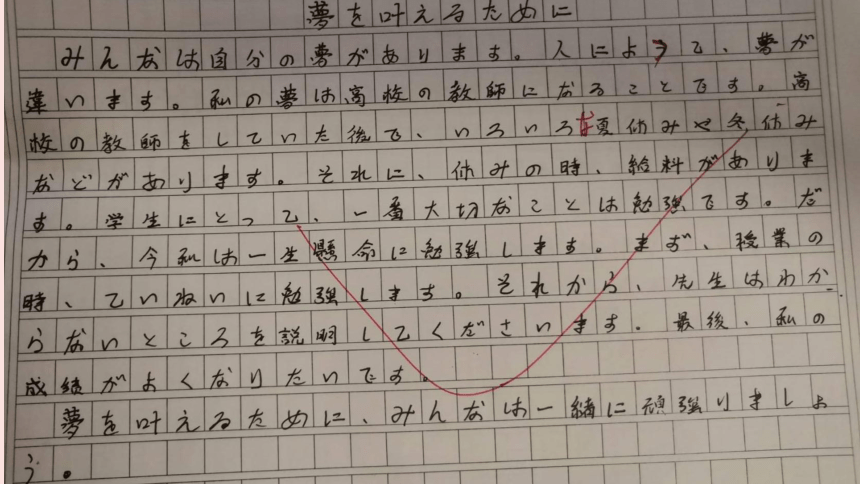 夢を叶えるために
みんなは自分の夢があります。人によって、夢が
違います。私の夢は高校の教師になることです。高
校の教師をしていた後で、いろいろな夏休みや冬休み
などがあります。それに、休みの時、給料がありま
す。学生にとって、一番大切なことは勉強です。だ
から、今私は一生懸命に勉強します。まず、授業の
時、ていねいに勉強します。それから、先生はわか
らないところを説明してくださいます。最後、私の
成績がよくなりたいです。
夢を叶えるために、みんなは一緒に頑強りましょ
う。